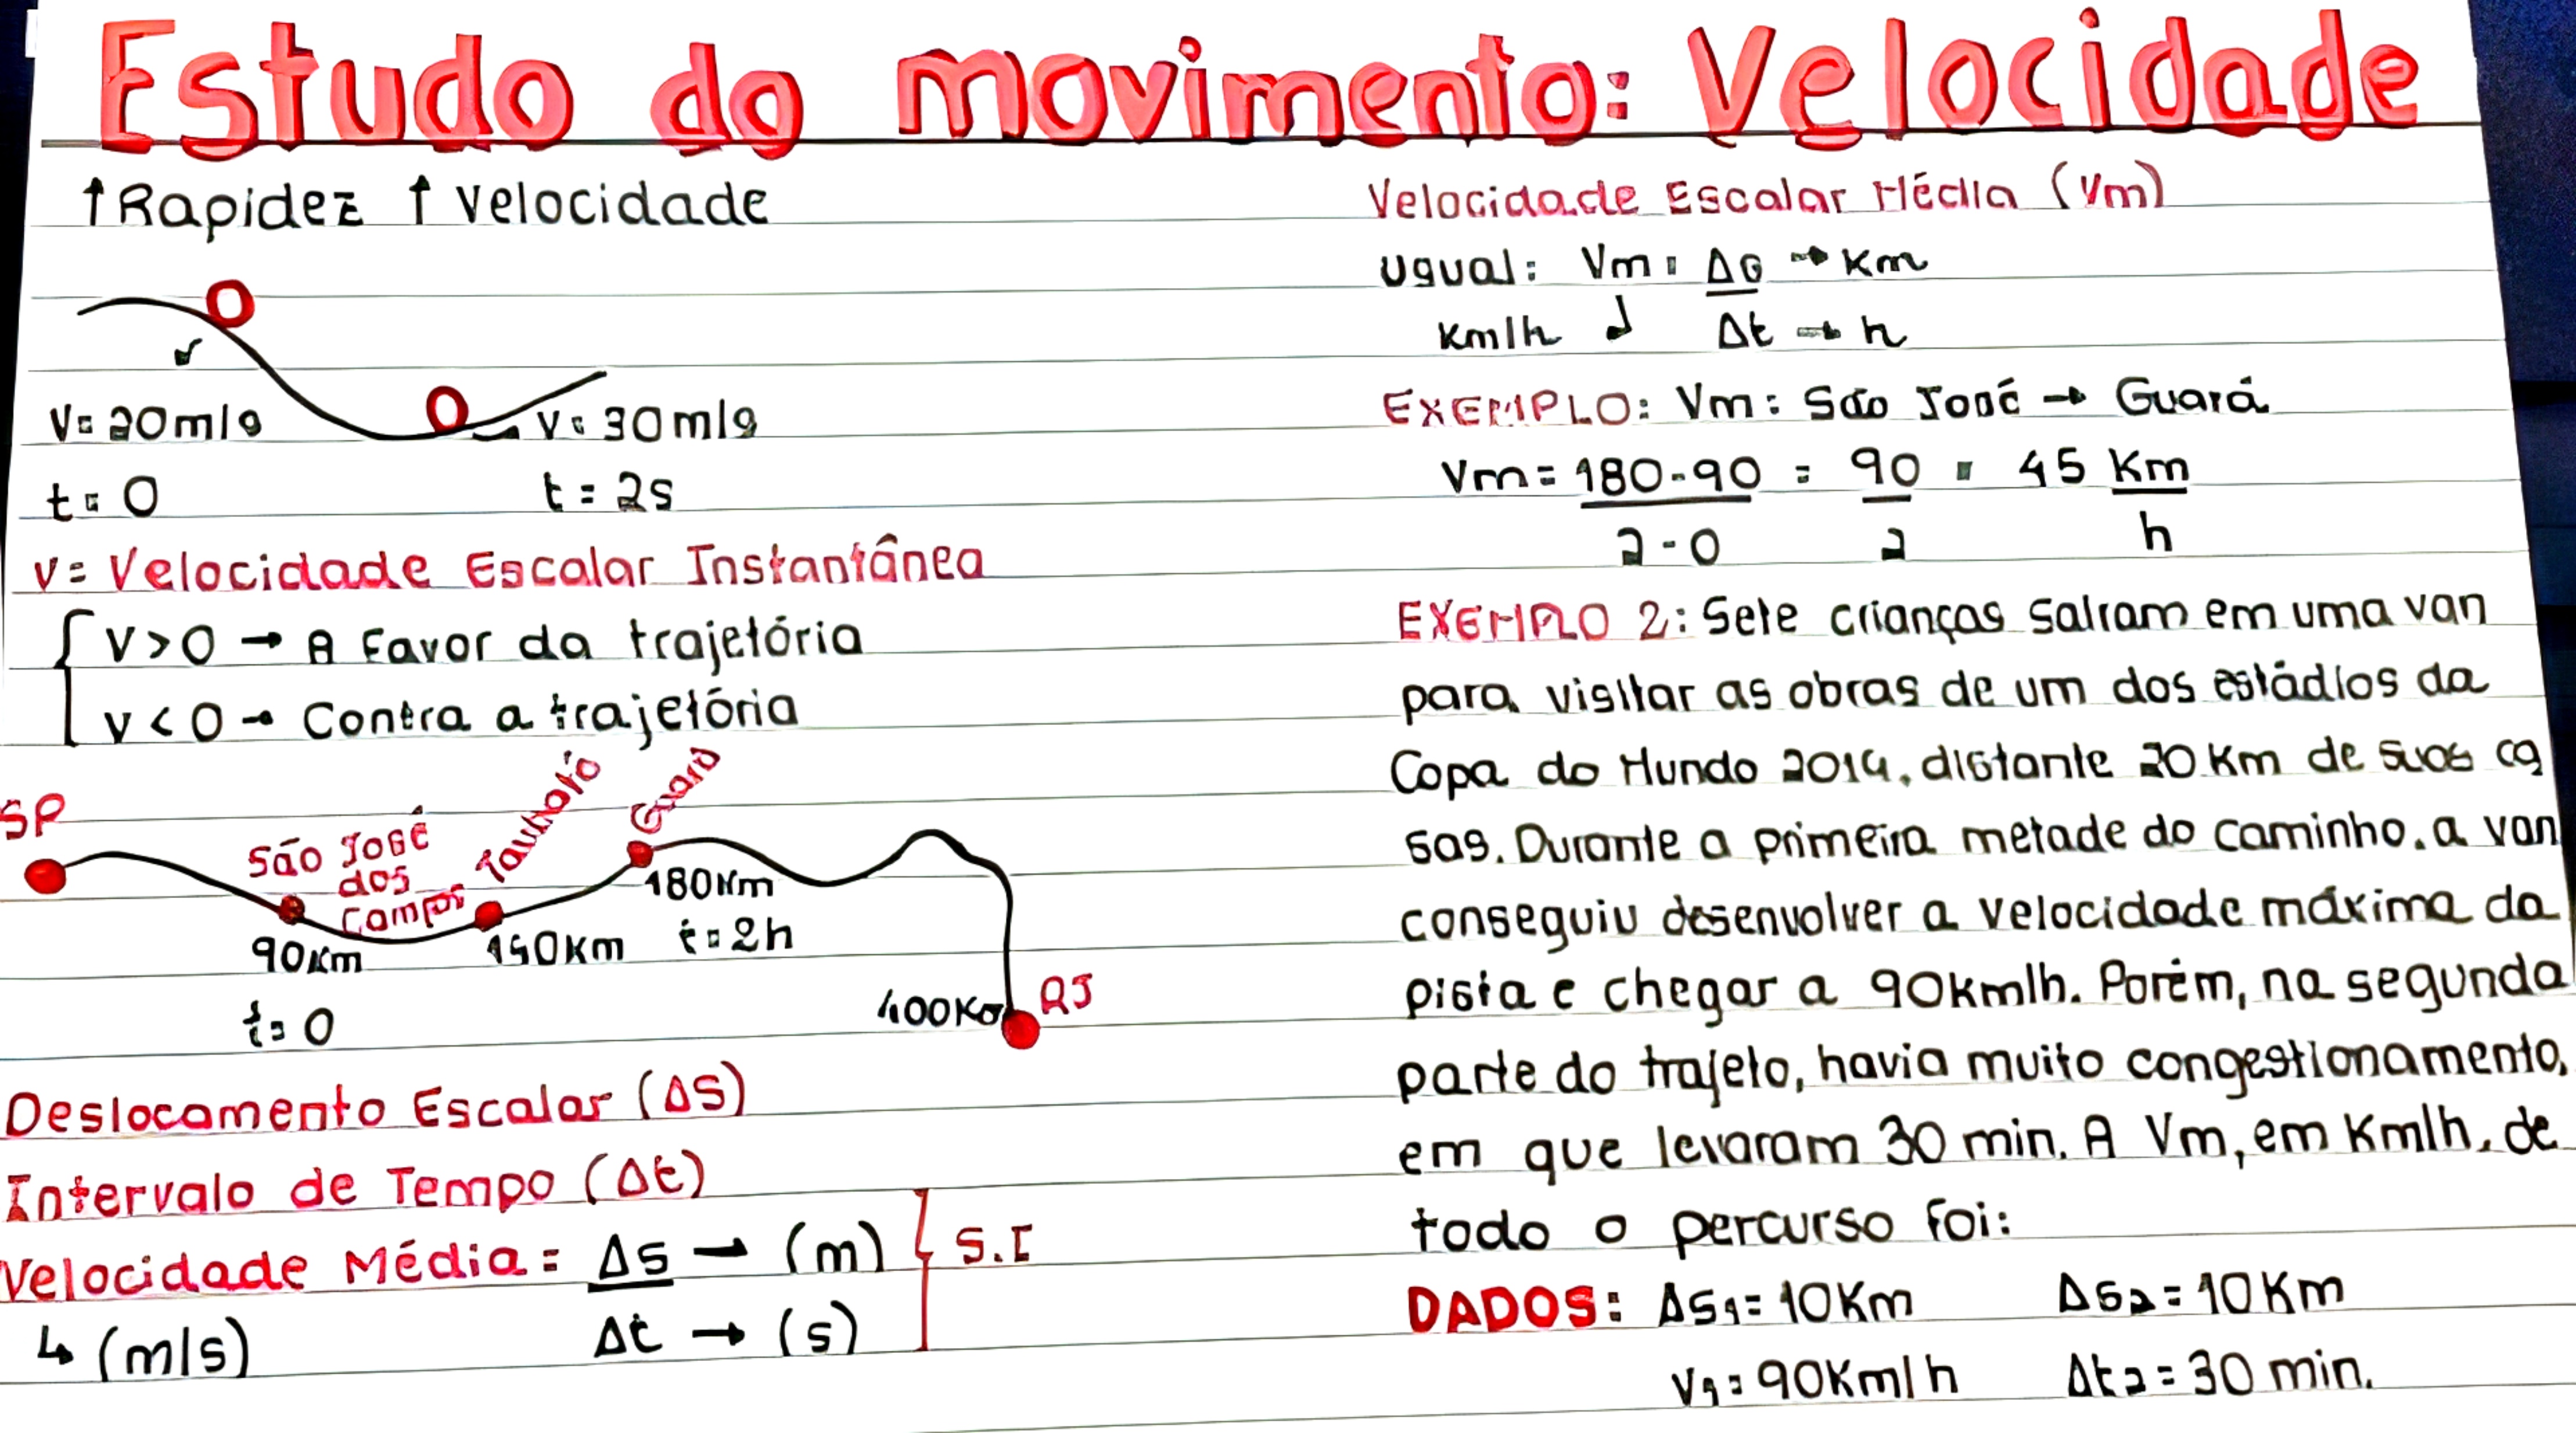 Estudo do movimento: Velocidade
↑Rapidez ↑ velocidade
V=20m/s
v=30m/s
t=0
t=2s
v=Velocidade Escalar Instantânea
v>0 → A Favor da trajetória
v<0 → Contra a trajetória
SP
São José
dos
Campos
Taubaté
Guará
90Km
t=0
140Km
180Km
t=2h
400Km
RJ
Deslocamento Escalar (ΔS)
Intervalo de Tempo (Δt)
Velocidade Média = Δs → (m)
↳ (m/s) Δt → (s)
S.I
Velocidade Escalar Média (Vm)
Usual: Vm = Δs → Km
Km/h ↲ Δt → h
EXEMPLO: Vm: São José → Guará
Vm = 180-90 = 90 = 45 Km
2-0 2 h
EXEMPLO 2: Sete crianças saíram em uma van
para visitar as obras de um dos estádios da
Copa do Mundo 2014, distante 20 Km de suas ca
sas. Durante a primeira metade do caminho, a van
conseguiu desenvolver a velocidade máxima da
pista e chegar a 90km/h. Porém, na segunda
parte do trajeto, havia muito congestionamento,
em que levaram 30 min. A Vm, em Km/h, de
todo o percurso foi:
DADOS: Δs1=10Km Δs2=10Km
V1=90Km/h Δt2=30 min.